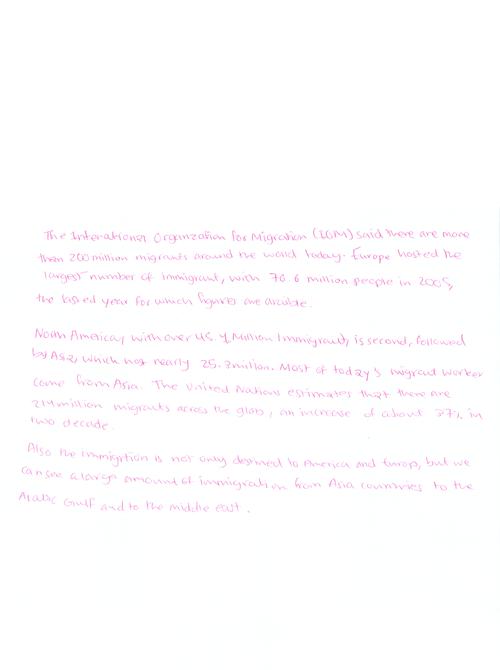 The International Organization for Migration (IOM) said there are more
then 200 million migrants around the world today. Europe hosted the
largest number of Immigrant, with 70.6 million people in 2005,
the lasted year for which figures are
North America, with over 45.1 Million Immigrants, is second, followed
by Asia, which hot nearly 25.3 million. Most of today's migrant worker
come from Asia. The United Nations estimates that there are
214 million migrants across the glob, an increase of about 37% in
two decade.
Also the immigrtion is not only destined to America and Europ, but we
can see a large amount of immigration from Asia countries to the
Arabic Gulf and to the middle east.